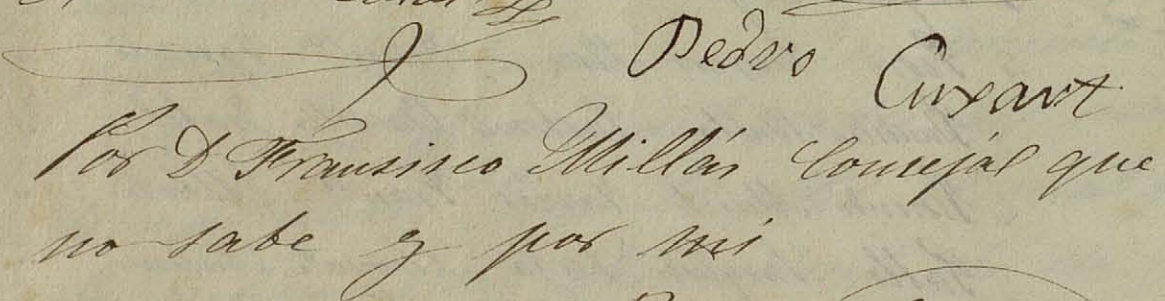 Pedro Cuxart
Por D Fransisco Millás Consejal que
no sabe y por mi